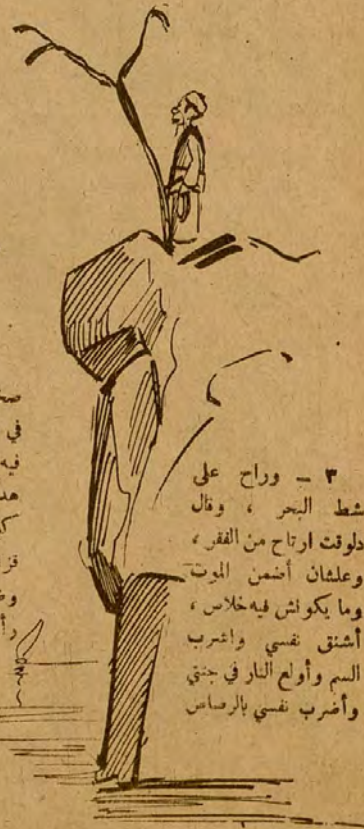 ٣ – وراح على
شط البحر ، وقال
دلوقت ارتاح من الفقر ،
وعلشان أضمن الموت
وما يكونش فيه خلاص ،
أشنق نفسي واشرب
السم وأولع النار في جنتي
وأضرب نفسي بالرصاص
في
فيه